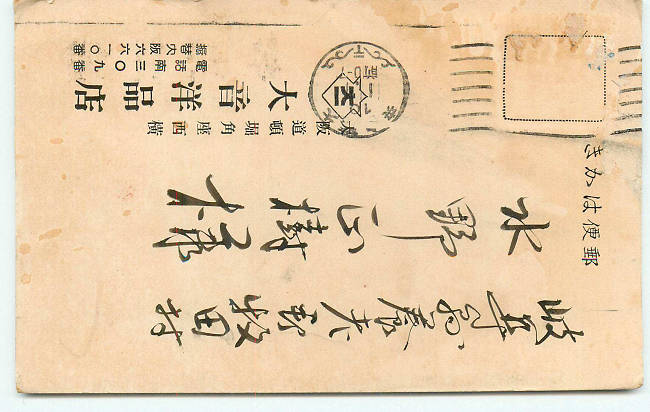 郵便はかき
岐阜縣養老郡牧田村
水野正樹
大阪道頓堀角座西横
大音洋品店
電話南三〇九番
振替大阪六六一〇番